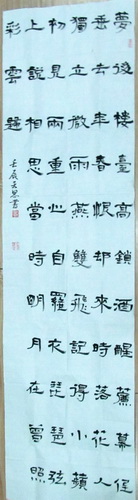 夢後樓臺高鎖酒醒簾幕低
垂去年春恨却來時落花人
獨立微雨燕雙飛記得小蘋
初見兩重心自羅衣琵琶弦
上說相思當時明月在曾照
彩雲歸
壬辰書